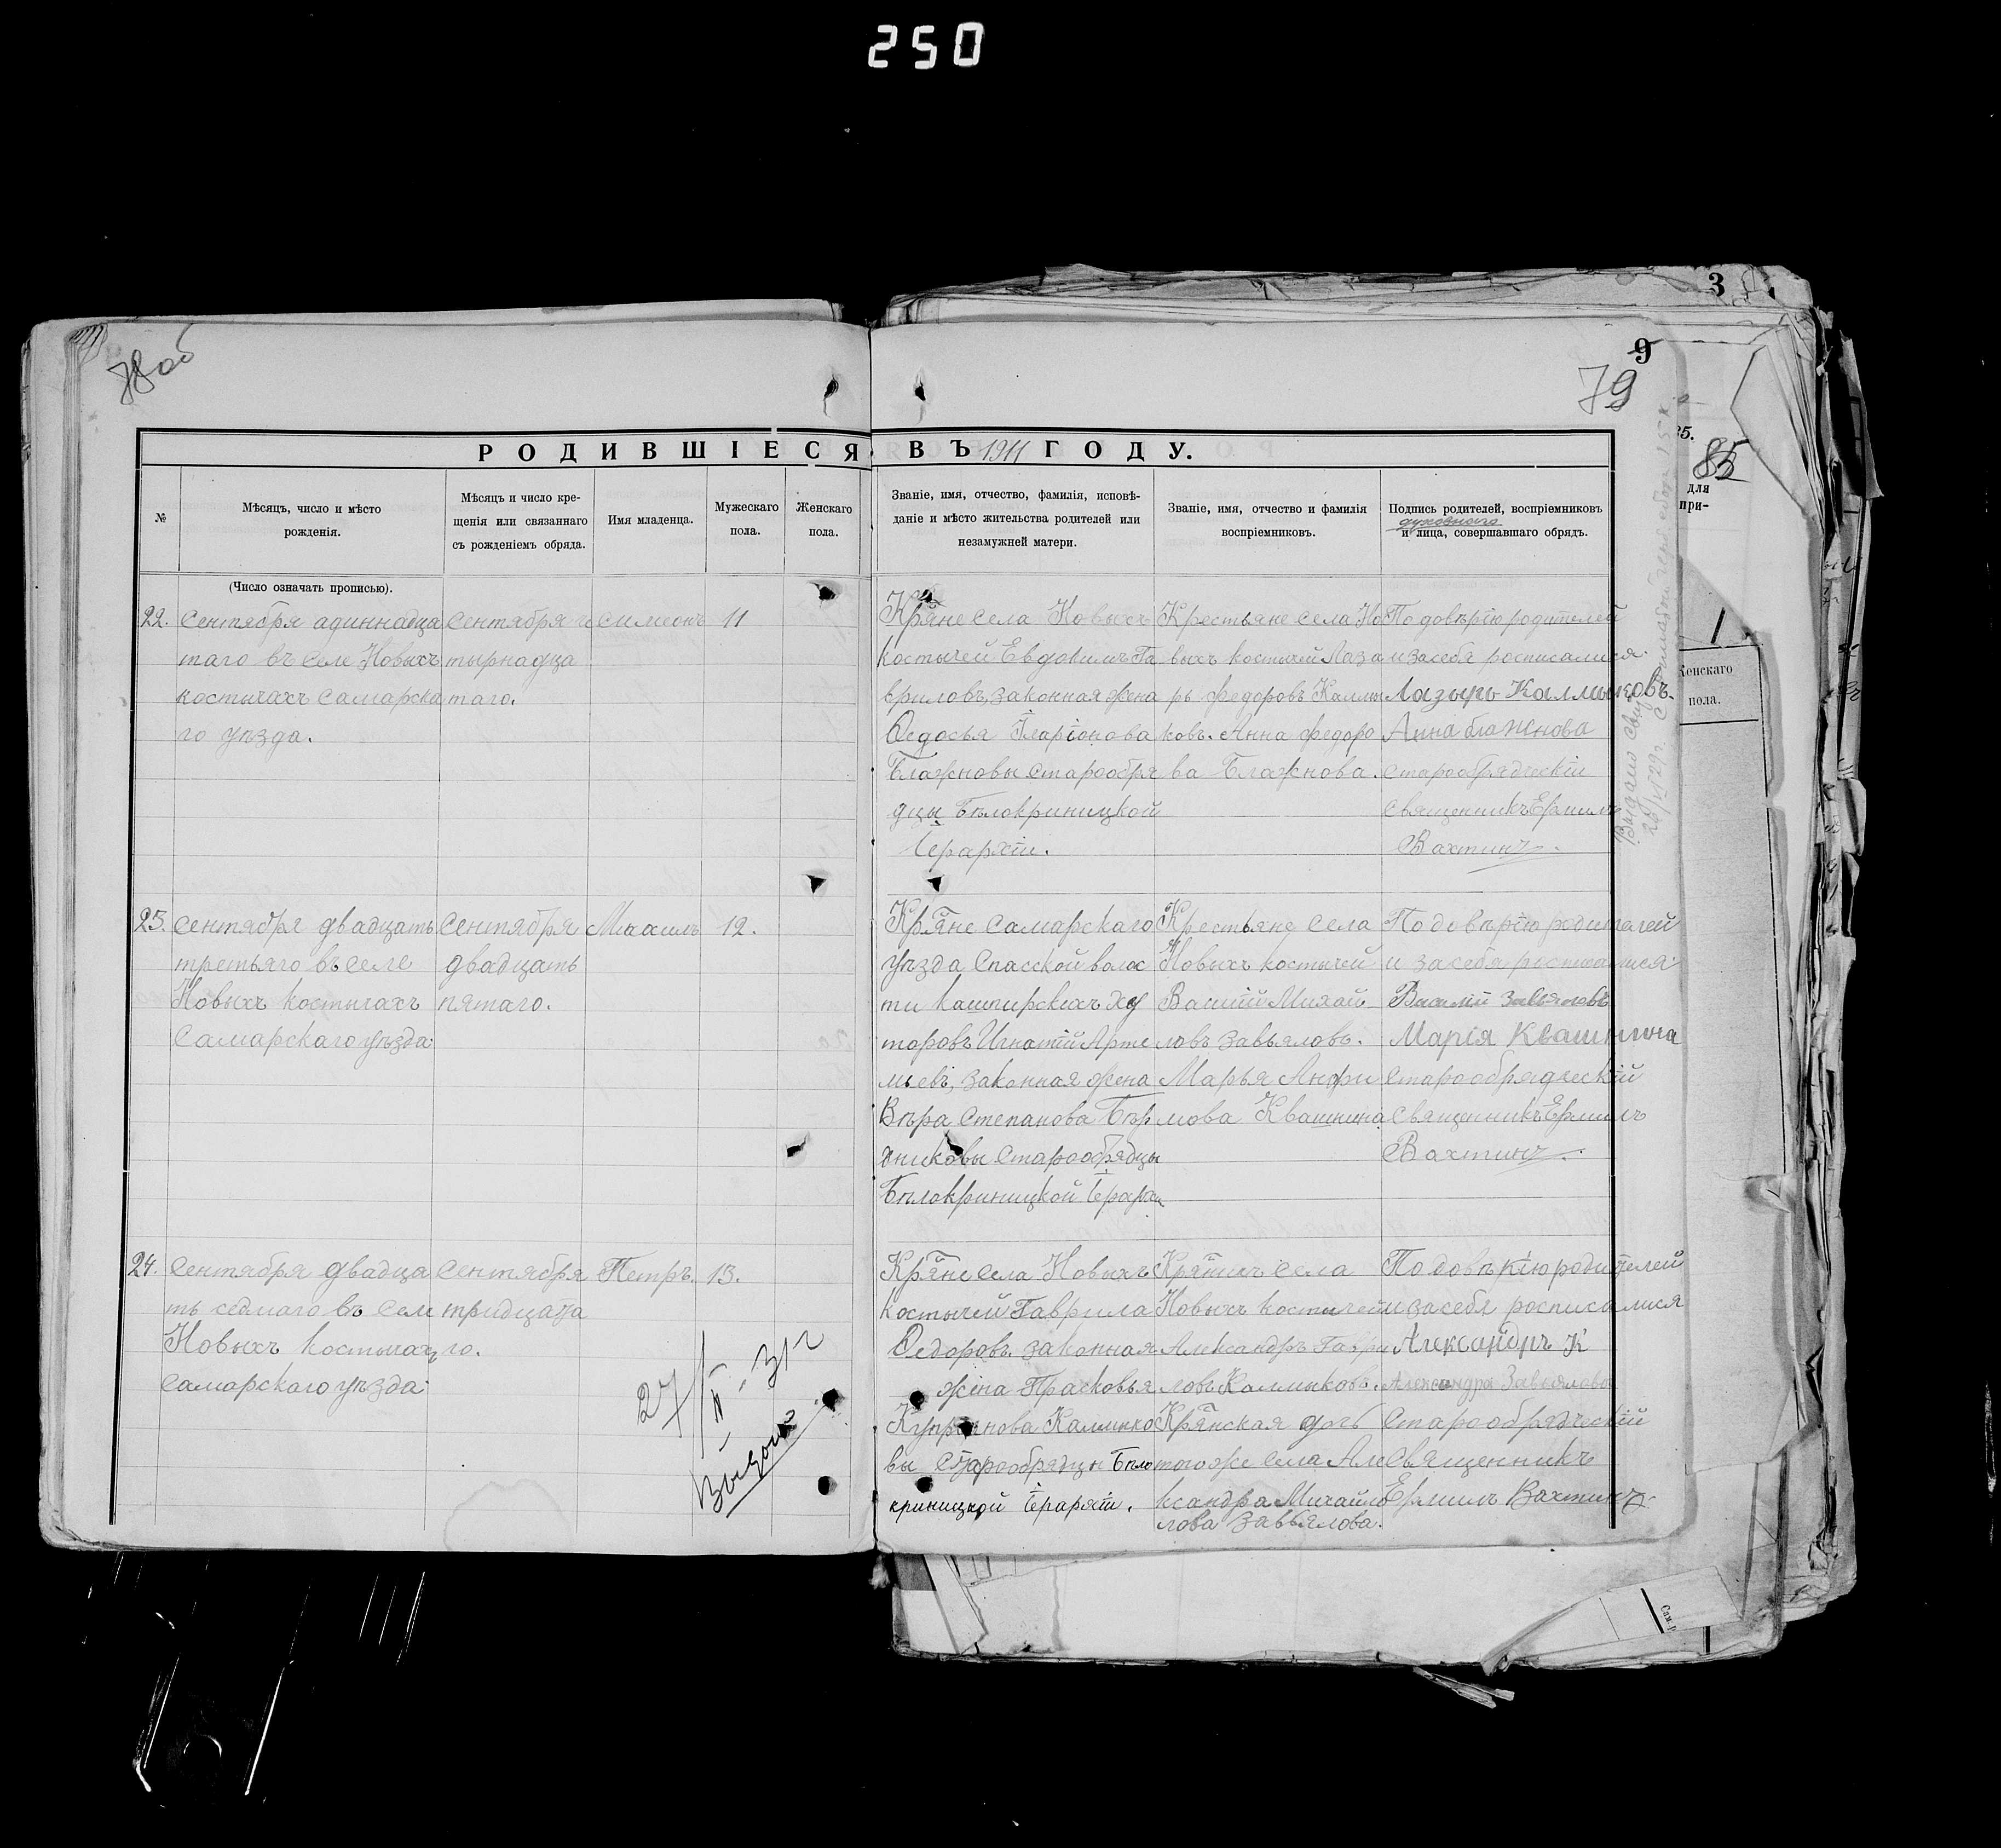 250
3
78 об
9
79
РОДИВШІЕСЯ ВЪ 1911 ГОДУ.
№
Мѣсяцъ, число и мѣсто
рожденія.
Мѣсяцъ и число кре-
щенія или связаннаго
съ рожденіемъ обряда.
Имя младенца.
Мужескаго
пола.
Женскаго
пола.
Званіе, имя, отчество, фамилія, исповѣ-
даніе и мѣсто жительства родителей или
незамужней матери.
Званіе, имя, отчество и фамилія
воспріемниковъ.
Подпись родителей, воспріемниковъ
духовнаго
и лица, совершавшаго обрядъ.
(Число означать прописью).
22.
Сентября адиннадца
таго въ селе Новыхъ
костычахъ самарска
го уѣзда.
Сентября че
тырнадца
таго.
Симеонъ
11
Кр̃яне села Новыхъ
костычей Евдокимъ Га
вриловъ, законная жена
Ѳедосья Іларіонова
Блажновы старообря
дцы Бѣлокриницкой
Іерархіи.
Крестьяне села Но
выхъ костычей Лаза
рь федоровъ Калмы
ковъ. Анна федоро
ва Блажнова.
По довѣрію родителей
и засебя росписалися.
Лазырь Калмыковъ.
Анна блажнова
старообрядческій
священникъ Ермилъ
Вахтинъ.
23.
Сентября двадцать
третьяго въ селе
Новыхъ костычахъ
Самарскаго уѣзда
Сентября
двадцать
пятаго.
12.
Кр̃яне Самарскаго
уѣзда Спасской волос
ти кашпирскихъ ху
торовъ Игнатій Арте
мьевъ, законная жена
Вѣра Степанова Бѣр
дниковы Старообрядцы
Бѣлокриницкой Іерархіи
Крестьяне Села
Новыхъ костычей
Василій Михай
ловъ завьяловъ.
Марья Анфи
мова Квашнина
По довѣрію родителей
и засебя росписалися
Василій завьяловъ
Марія Квашнина
Старообрядческій
Священникъ Ермилъ
Вахтинъ.
24.
Сентября двадца
ть седмаго въ сели
Новыхъ костычахъ
самарскаго уѣзда
Сентября
тридцата
го.
Петръ.
13.
27/II-31 г
Кр̃яне села Новыхъ
костычей Гаврила
Ѳедоровъ законная
жена Прасковья
Купріянова Калмыко
вы Старообрядцы Бѣло
криницкой Іерархіи.
Кр̃янинъ села
Новыхъ костычей
Александръ Гаври
ловъ Калмыковъ.
Кр̃янская дочь
тогоже села Але
ксандра Михайло
лова Завьялова.
По довѣрію родителей
и засебя росписалися
Александръ К
Александра Завьялова
Старообрядческій
Священникъ
Ермилъ Вахтинъ
Выдано
85
для
при-
Женскаго
пола.